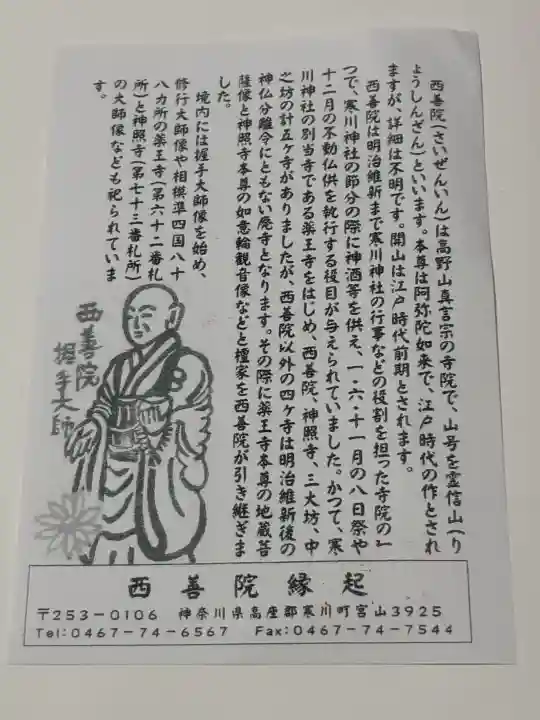 西善院(さいぜんいん)は高野山真言宗の寺院で、山号を霊信山(り
ょうしんざん)といいます。本尊は阿弥陀如来で、江戸時代の作とされ
ますが、詳細は不明です。開山は江戸時代前期とされます。
西善院は明治維新まで寒川神社の行事などの役割を担った寺院の一
つで、寒川神社の節分の際に神酒等を供え、一・六・十一月の八日祭や
十二月の不動仏供を執行する役目が与えられていました。かつて、寒
川神社の別当寺である薬王寺をはじめ、西善院、神照寺、三大坊、中
之坊の計五ヶ寺がありましたが、西善院以外の四ヶ寺は明治維新後の
神仏分離令にともない廃寺となります。その際に薬王寺本尊の地蔵菩
薩像と神照寺本尊の如意輪観音像などと檀家を西善院が引き継ぎま
した。
境内には握手大師像を始め、
修行大師像や相模準四国八十
八カ所の薬王寺(第六十二番札
所)と神照寺(第七十三番札所)
の大師像なども祀られていま
す。
西善院
握手大師
西善院縁起
〒253-0106 神奈川県高座郡寒川町宮山3925
Tel:0467-74-6567 Fax:0467-74-7544